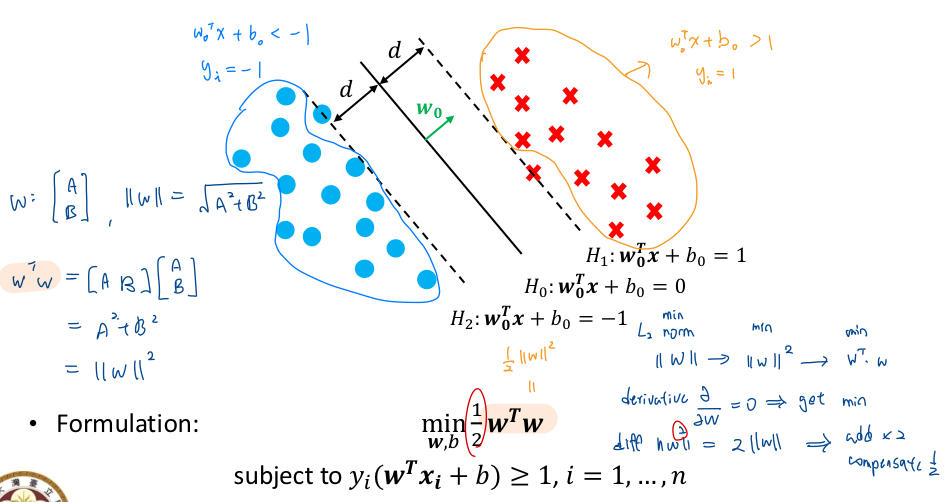 w₀ᵀx + b₀ < -1
yᵢ = -1
w₀ᵀx + b₀ > 1
yᵢ = 1
d
d
w₀
w: [A B], ||w|| = √A²+B²
wᵀw = [A B] [A B]
= A²+B²
= ||w||²
H₁: w₀ᵀx + b₀ = 1
H₀: w₀ᵀx + b₀ = 0
H₂: w₀ᵀx + b₀ = −1
min min min
L₂ norm
||w|| → ||w||² → wᵀ·w
½ ||w||²
||
derivative ∂/∂w = 0 ⇒ get min
diff ||w||² = 2||w|| ⇒ add ×2
compensate ½
• Formulation:
min w,b ½ wᵀw
subject to yᵢ(wᵀxᵢ + b) ≥ 1, i = 1, …, n